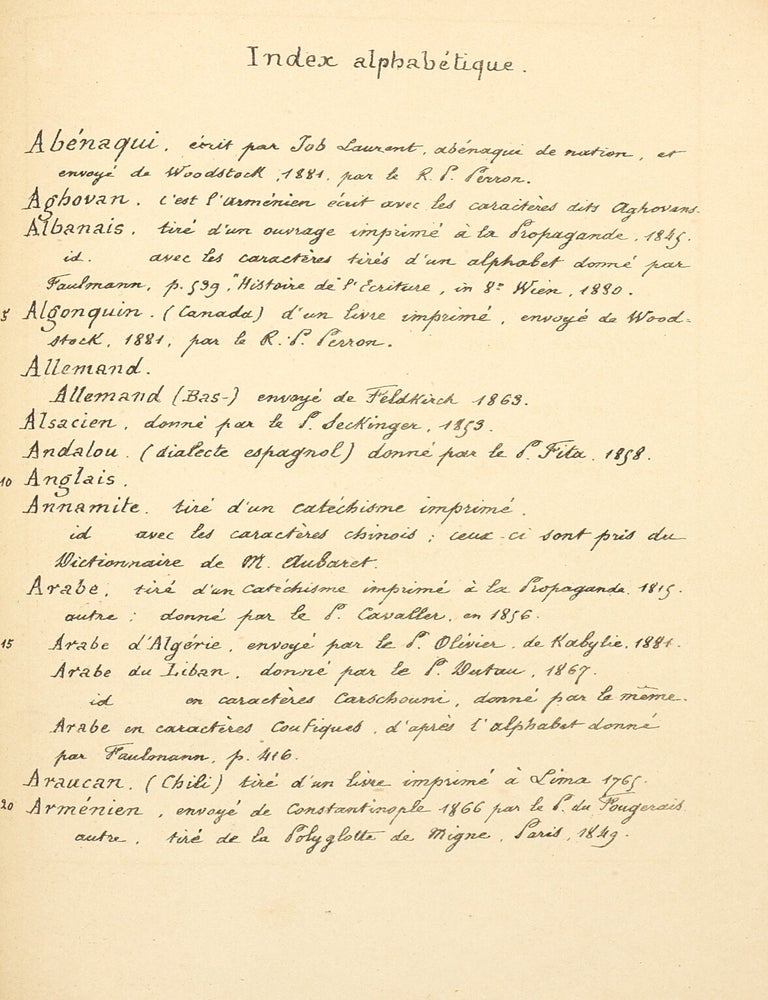 Index alphabétique.
Abénaqui, écrit par Job Laurent, abénaqui de nation, et
envoyé de Woodstock, 1881, par le R. P. Perron.
Aghovan. c'est l'arménien écrit avec les caractères dits Aghovans.
Albanais. tiré d'un ouvrage imprimé à la Propagande. 1845.
id. avec les caractères tirés d'un alphabet donné par
Faulmann, p. 539, "Histoire de l'Ecriture, in 8º Wien, 1880.
5 Algonquin. (Canada) d'un livre imprimé, envoyé de Wood=
stock, 1881, par le R. P. Perron.
Allemand.
Allemand (Bas-) envoyé de Feldkirch 1863.
Alsacien, donné par le P. Seckinger, 1853.
Andalou. (dialecte espagnol) donné par le P. Fita. 1858.
10 Anglais.
Annamite. tiré d'un catéchisme imprimé.
id avec les caractères chinois; ceux-ci sont pris du
Dictionnaire de M. Aubaret.
Arabe, tiré d'un catéchisme imprimé à la Propagande. 1815.
autre; donné par le P. Cavaller, en 1856.
15 Arabe d'Algérie, envoyé par le P. Olivier, de Kabylie, 1881.
Arabe du Liban, donné par le P. Dutau, 1867.
id en caractères Carschouni, donné par le même.
Arabe en caractères Coufiques, d'après l'alphabet donné
par Faulmann, p. 416.
Araucan. (Chili) tiré d'un livre imprimé à Lima 1765.
20 Arménien, envoyé de Constantinople 1866 par le P. du Fougerais.
autre, tiré de la Polyglotte de Migne, Paris, 1849.